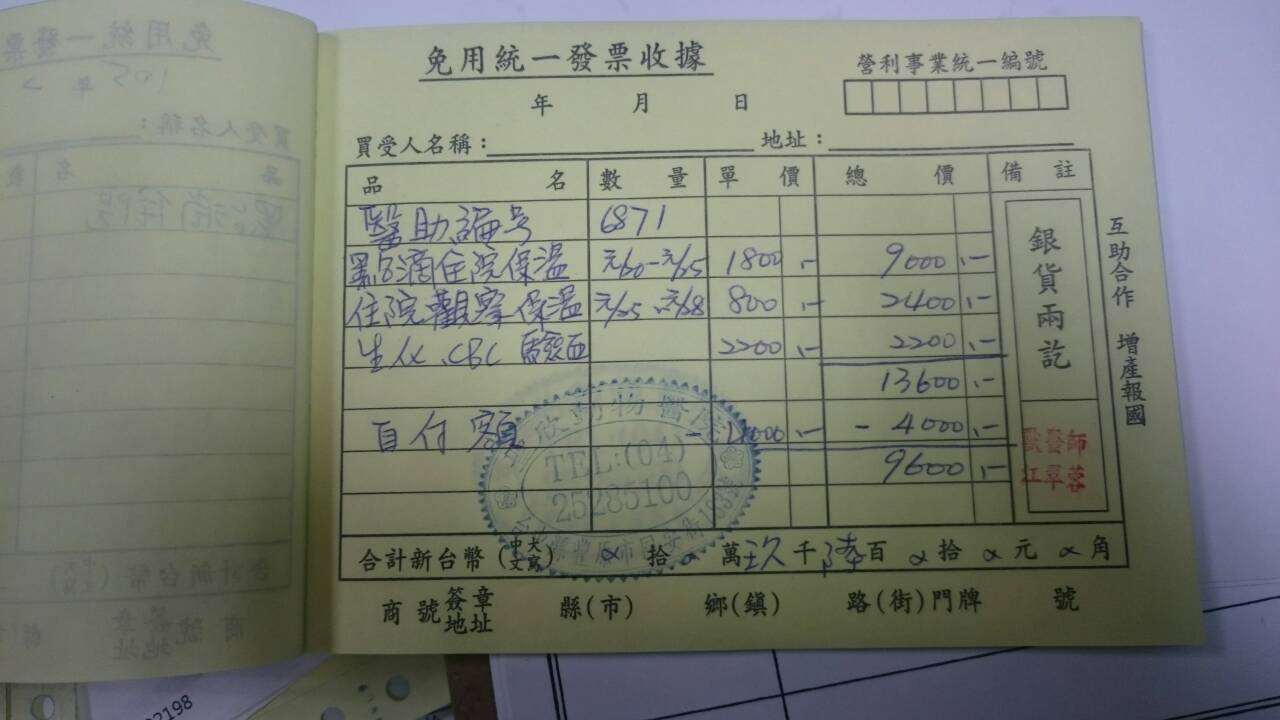 免用統一發票收據
營利事業統一編號
年 月 日
買受人名稱： 地址：
品名 數量 單價 總價 備註
醫助編号 6871
點滴住院保溫 1800.- 9000.-
住院觀察保溫 800.- 2400.-
生化.CBC 驗血 2200.- 2200.-
13600.-
自付額 - 4000.- - 4000.-
9600.-
銀貨兩訖
互助合作 增產報國
獸醫師
江翠蓉
欣動物醫院
TEL:(04)
25285100
豐原市
合計新台幣(中文大寫) 拾 萬玖千陸百 拾 元 角
商號簽章地址 縣(市) 鄉(鎮) 路(街)門牌 號
免用統一發票
105年
買受人名稱：
品名
點滴住院
合計新台幣
商號簽章地址
02198